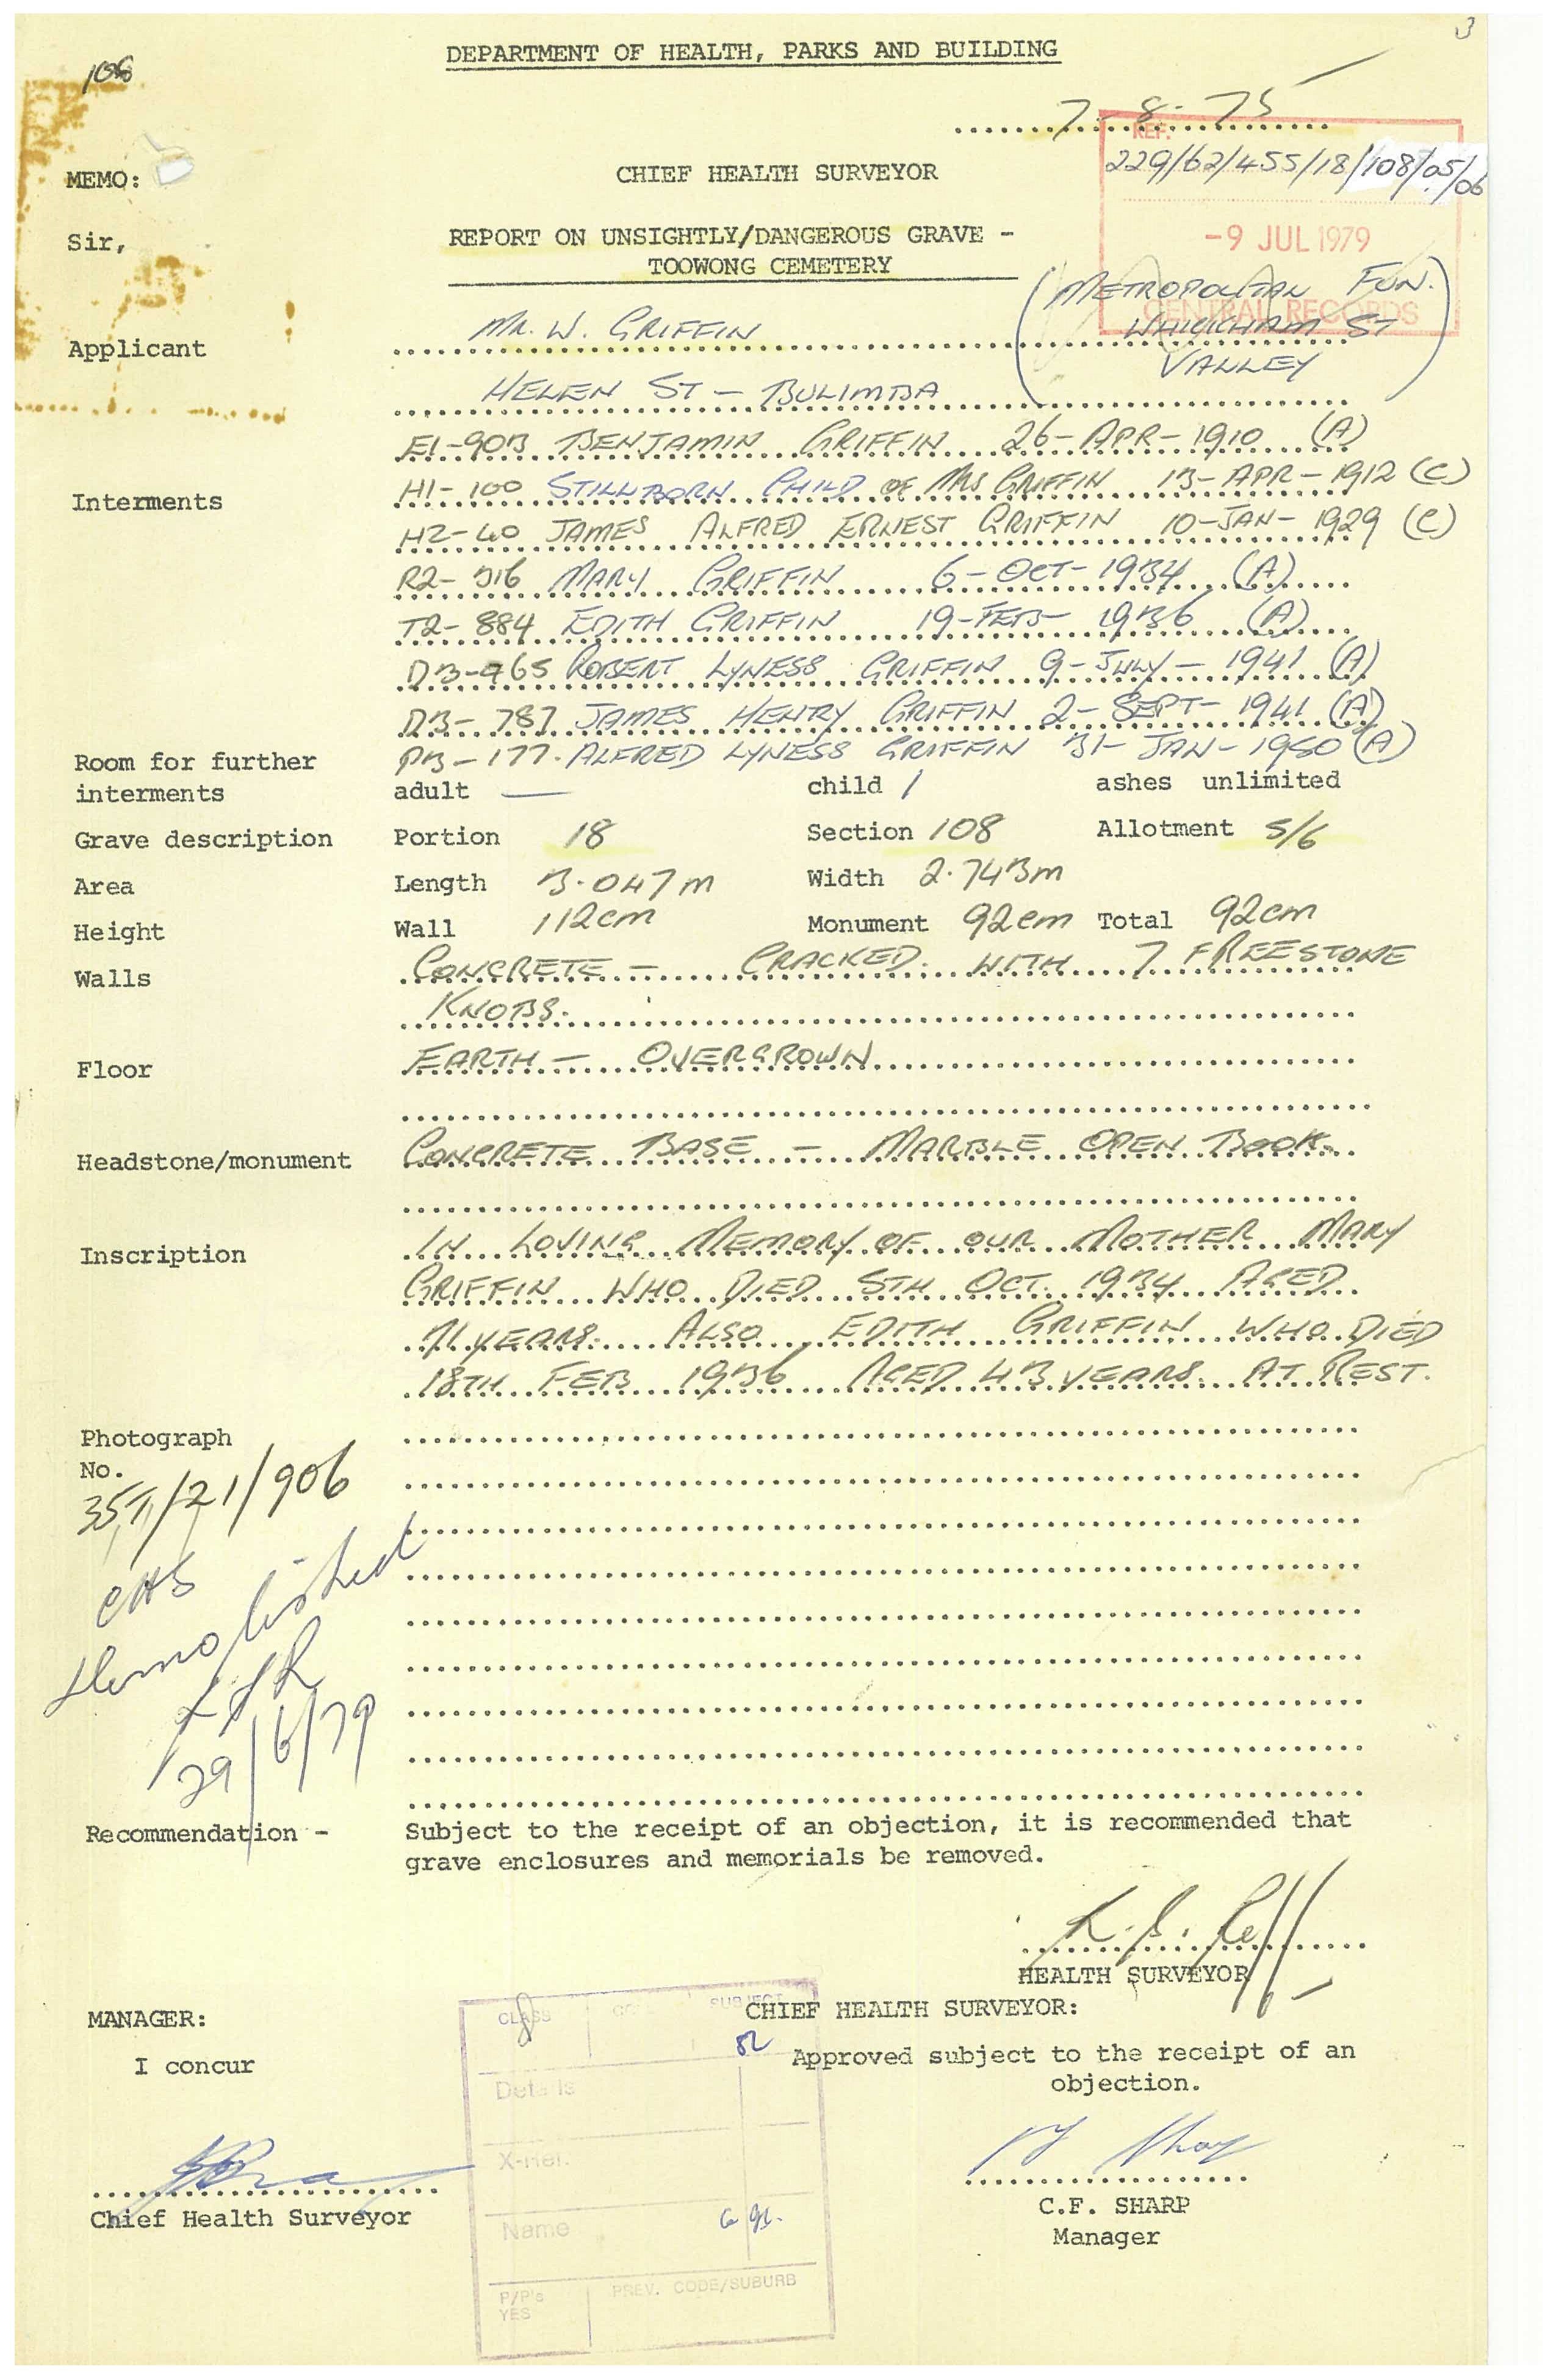 3
106
DEPARTMENT OF HEALTH, PARKS AND BUILDING
7-8-75
REF.
229/62/455/18/108/05/06
MEMO:
CHIEF HEALTH SURVEYOR
Sir,
REPORT ON UNSIGHTLY/DANGEROUS GRAVE -
TOOWONG CEMETERY
-9 JUL 1979
CENTRAL RECORDS
(METROPOLITAN FUN.
WHICKHAM ST
VALLEY)
Applicant MR. W. GRIFFIN
HELEN ST - BULIMBA
E1-903 BENJAMIN GRIFFIN 26-APR-1910 (A)
Interments H1-100 STILLBORN CHILD OF MRS GRIFFIN 13-APR-1912 (C)
H2-40 JAMES ALFRED ERNEST GRIFFIN 10-JAN-1929 (C)
R2-316 MARY GRIFFIN 6-OCT-1934 (A)
T2-884 EDITH GRIFFIN 19-FEB-1936 (A)
ROBERT LYNESS GRIFFIN 9-JULY-1941 (A)
D3-787 JAMES HENRY GRIFFIN 2-SEPT-1941 (A)
ALFRED LYNESS GRIFFIN 31-JAN-1950 (A)
Room for further
interments adult — child 1 ashes unlimited
Grave description Portion 18 Section 108 Allotment 5/6
Area Length 3.047m Width 2.743m
Height Wall 112cm Monument 92cm Total 92cm
Walls CONCRETE - CRACKED. WITH 7 FREESTONE
KNOBS.
Floor EARTH - OVERGROWN
Headstone/monument CONCRETE BASE - MARBLE OPEN BOOK.
Inscription IN LOVING MEMORY OF OUR MOTHER MARY
GRIFFIN WHO DIED 5TH OCT. 1934 AGED
71 YEARS. ALSO EDITH GRIFFIN WHO DIED
18TH FEB 1936 AGED 43 YEARS. AT REST.
Photograph
No.
357/21/906
CHS
demolished
29/6/79
Recommendation - Subject to the receipt of an objection, it is recommended that
grave enclosures and memorials be removed.
HEALTH SURVEYOR
MANAGER:
CHIEF HEALTH SURVEYOR:
I concur
Approved subject to the receipt of an
objection.
CLASS SUBJECT
Details
X-Ref.
Name
P/P's
YES
PREV. CODE/SUBURB
Chief Health Surveyor
C.F. SHARP
Manager